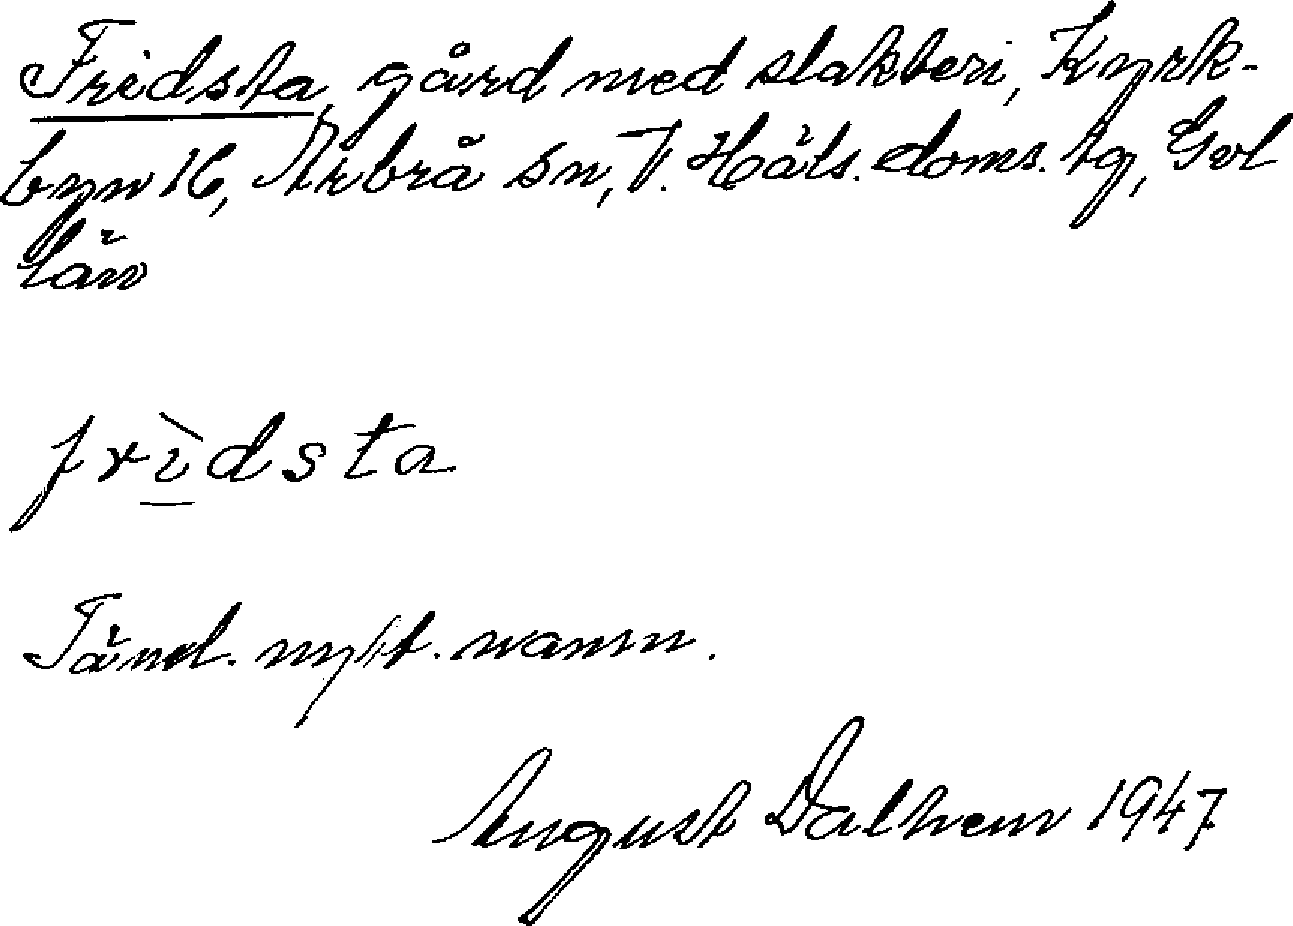 Fridsta, gård med slakteri, Kyrk-
byn 16, Arbrå sn, V. Häls. doms. tg, Gvl
län
frìdsta
Tänd. nytt. namn.
August Dalhem 1947